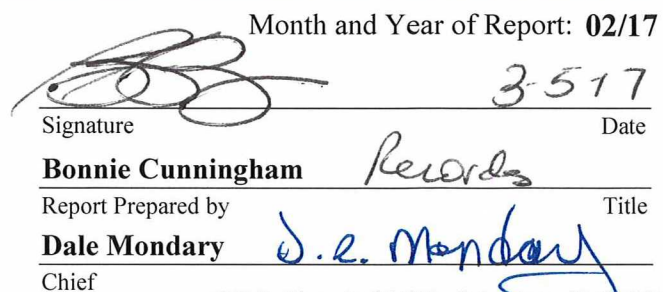 Month and Year of Report: 02/17
3-5-17
Signature Date
Bonnie Cunningham Records
Report Prepared by Title
Dale Mondary D. R. Mondary
Chief